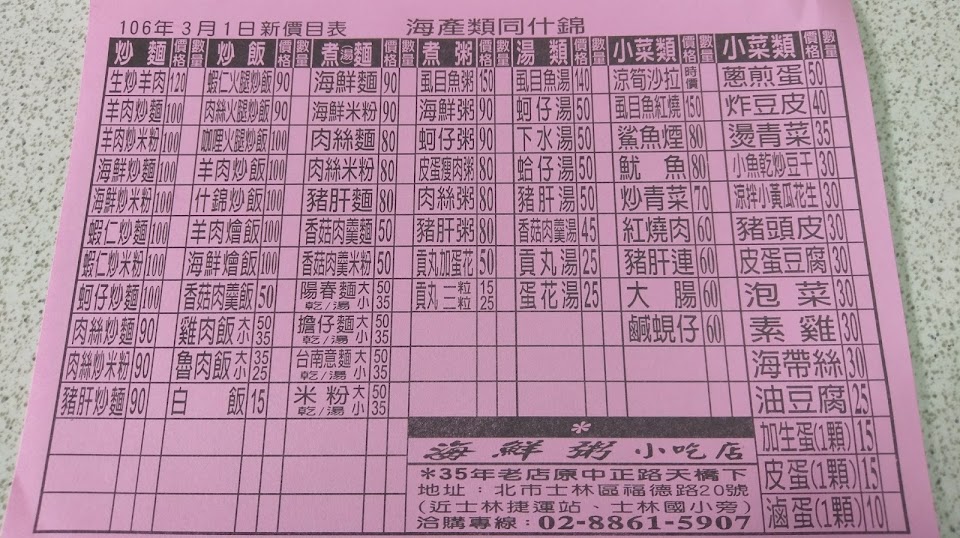 106年3月1日新價目表 海產類同什錦
炒麵 價格 數量 炒飯 價格 數量 煮湯麵 價格 數量 煮粥 價格 數量 湯類 價格 數量 小菜類 價格 數量 小菜類 價格 數量
生炒羊肉 120 蝦仁火腿炒飯 90 海鮮麵 90 虱目魚粥 150 虱目魚湯 140 涼筍沙拉 時價 蔥煎蛋 50
羊肉炒麵 100 肉絲火腿炒飯 90 海鮮米粉 90 海鮮粥 90 蚵仔湯 50 虱目魚紅燒 150 炸豆皮 40
羊肉炒米粉 100 咖哩火腿炒飯 100 肉絲麵 80 蚵仔粥 90 下水湯 50 鯊魚煙 80 燙青菜 35
海鮮炒麵 100 羊肉炒飯 100 肉絲米粉 80 皮蛋瘦肉粥 80 蛤仔湯 50 魷魚 80 小魚乾炒豆干 30
海鮮炒米粉 100 什錦炒飯 100 豬肝麵 80 肉絲粥 80 豬肝湯 50 炒青菜 70 涼拌小黃瓜花生 30
蝦仁炒麵 100 羊肉燴飯 100 香菇肉羹麵 50 豬肝粥 80 香菇肉羹湯 45 紅燒肉 60 豬頭皮 30
蝦仁炒米粉 100 海鮮燴飯 100 香菇肉羹米粉 50 貢丸加蛋花 50 貢丸湯 25 豬肝連 60 皮蛋豆腐 30
蚵仔炒麵 100 香菇肉羹飯 50 陽春麵 乾/湯 大 50 小 35 貢丸 一粒 15 二粒 25 蛋花湯 25 大腸 60 泡菜 30
肉絲炒麵 90 雞肉飯 大 50 小 35 擔仔麵 乾/湯 大 50 小 35 鹹蜆仔 60 素雞 30
肉絲炒米粉 90 魯肉飯 大 35 小 25 台南意麵 乾/湯 大 50 小 35 海帶絲 30
豬肝炒麵 90 白飯 15 米粉 乾/湯 大 50 小 35 油豆腐 25
加生蛋(1顆) 15
皮蛋(1顆) 15
滷蛋(1顆) 10
*
海鮮粥小吃店
*35年老店原中正路天橋下
地址：北市士林區福德路20號
(近士林捷運站、士林國小旁)
洽購專線：02-8861-5907